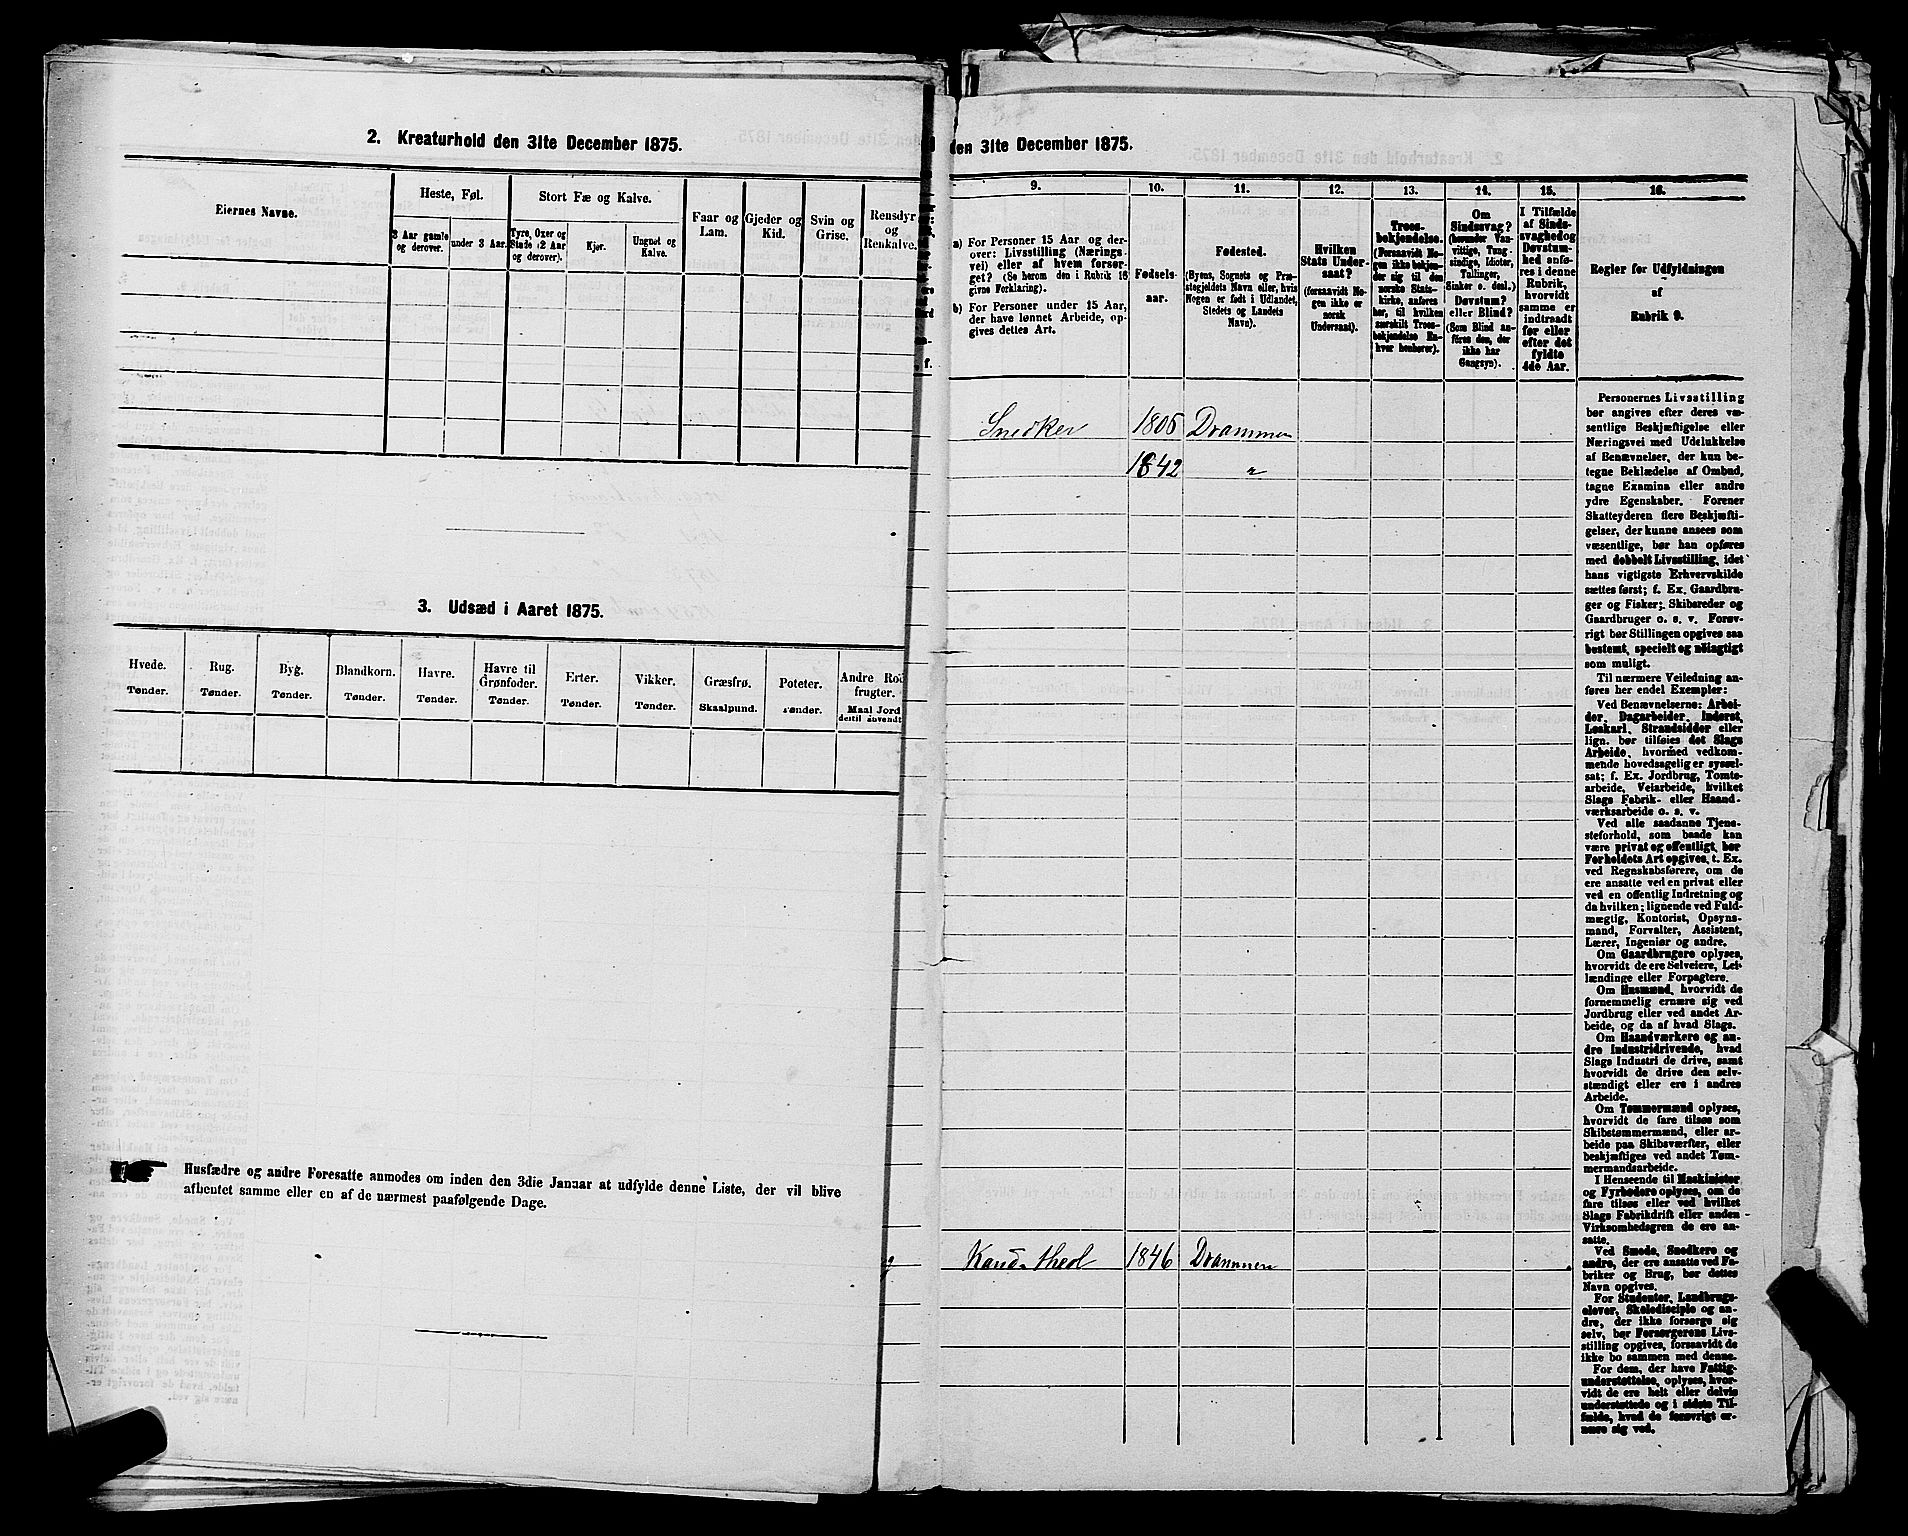 2. Kreaturhold den 31te December 1875.
Eiernes Navne.
Heste, Føl.
3 Aar gamle og derover.
under 3 Aar.
Stort Fæ og Kalve.
Tyre, Oxer og Stude (2 Aar og derover).
Kjør.
Ungnøt og Kalve.
Faar og Lam.
Gjeder og Kid.
Svin og Grise.
Rensdyr og Renkalve.
3. Udsæd i Aaret 1875.
Hvede. Tønder.
Rug. Tønder.
Byg. Tønder.
Blandkorn. Tønder.
Havre. Tønder.
Havre til Grønfoder. Tønder.
Erter. Tønder.
Vikker. Tønder.
Græsfrø. Skaalpund.
Poteter. Tønder.
Andre Rod
frugter.
Maal Jord
dertil anvendt
Husfædre og andre Foresatte anmodes om inden den 3die Januar at udfylde denne Liste, der vil blive
afhentet samme eller en af de nærmest paafølgende Dage.
den 31te December 1875.
9.
a) For Personer 15 Aar og der-
over: Livsstilling (Nærings-
vei) eller af hvem forsør-
get? (Se herom den i Rubrik 16
givne Forklaring).
b) For Personer under 15 Aar,
der have lønnet Arbeide, op-
gives dettes Art.
10.
Fødsels-
aar.
11.
Fødested.
(Byens, Sognets og Præ-
stegjeldets Navn eller, hvis
Nogen er født i Udlandet,
Stedets og Landets
Navn).
12.
Hvilken
Stats Under-
saat?
(forsaavidt No-
gen ikke er
norsk
Undersaat).
13.
Troes-
bekjendelse.
(Forsaavidt No-
gen ikke bekjen-
der sig til den
norske Stats-
kirke, anføres
her, til hvilken
særskilt Troes-
bekjendelse En-
hver henhører).
14.
Om
Sindssvag?
(herunder Van-
vittige, Tung-
sindige, Idioter,
Tullinger,
Sinker o. desl.)
Døvstum?
eller Blind?
(Som Blind an-
føres den, der
ikke har
Gangsyn).
15.
I Tilfælde
af Sinds-
svaghed og
Døvstum-
hed anfø-
res i denne
Rubrik,
hvorvidt
samme er
indtraadt
før eller
efter det
fyldte
4de Aar.
16.
Regler for Udfyldningen
af
Rubrik 9.
Snedker 1806 Drammen
1842 "
Kand. theol 1846 Drammen
Personernes Livsstilling
bør angives efter deres væ-
sentlige Beskjæftigelse eller
Næringsvei med Udelukkelse
af Benævnelser, der kun be-
tegne Beklædelse af Ombud,
tagne Examina eller andre
ydre Egenskaber. Forener
Skatteyderen flere Beskjæfti-
gelser, der kunne ansees som
væsentlige, bør han opføres
med dobbelt Livsstilling, idet
hans vigtigste Erhvervskilde
sættes først; f. Ex. Gaardbru-
ger og Fisker; Skibsreder og
Gaardbruger o. s. v. Forøv-
rigt bør Stillingen opgives saa
bestemt, specielt og nøiagtigt
som muligt.
Til nærmere Veiledning an-
føres her endel Exempler:
Ved Benævnelserne: Arbei-
der, Dagarbeider, Inderst,
Løskarl, Strandsidder eller
lign. bør tilføies det Slags
Arbeide, hvormed vedkom-
mende hovedsagelig er syssel-
sat; f. Ex. Jordbrug, Tomte-
arbeide, Veiarbeide, hvilket
Slags Fabrik- eller Haand-
værksarbeide o. s. v.
Ved alle saadanne Tjene-
steforhold, som baade kan
være privat og offentligt, bør
Forholdets Art opgives, t. Ex.
ved Regnskabsførere, om de
ere ansatte ved en privat eller
ved en offentlig Indretning og
da hvilken; lignende ved Fuld-
mægtig, Kontorist, Opsyns-
mand, Forvalter, Assistent,
Lærer, Ingeniør og andre.
Om Gaardbrugere oplyses,
hvorvidt de ere Selveiere, Lei-
lændinge eller Forpagtere.
Om Husmænd, hvorvidt de
fornemmelig ernære sig ved
Jordbrug eller ved andet Ar-
beide, og da af hvad Slags.
Om Haandværkere og an-
dre Industridrivende, hvad
Slags Industri de drive, samt
hvorvidt de drive den selv-
stændigt eller ere i andres
Arbeide.
Om Tømmermænd oplyses,
hvorvidt de fare tilsøs som
Skibstømmermænd, eller ar-
beide paa Skibsværfter, eller
beskjæftiges ved andet Tøm-
mermandsarbeide.
I Henseende til Maskinister
og Fyrbødere oplyses, om de
fare tilsøs eller ved hvilket
Slags Fabrikdrift eller anden
Virksomhedsgren de ere an-
satte.
Ved Smede, Snedkere og
andre, der ere ansatte ved Fa-
briker og Brug, bør dettes
Navn opgives.
For Studenter, Landbrugs-
elever, Skoledisciple og an-
dre, der ikke forsørge sig
selv, bør Forsørgerens Livs-
stilling opgives, forsaavidt de
ikke bo sammen med denne.
For dem, der have Fattig-
understøttelse, oplyses, hvor-
vidt de ere helt eller delvis
understøttede og i sidste Til-
fælde, hvad de forøvrigt er-
nære sig ved.